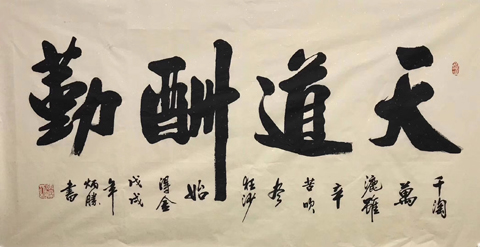 天道酬勤
千淘萬漉雖辛苦吹尽狂沙始得金戊戌年炳勝書